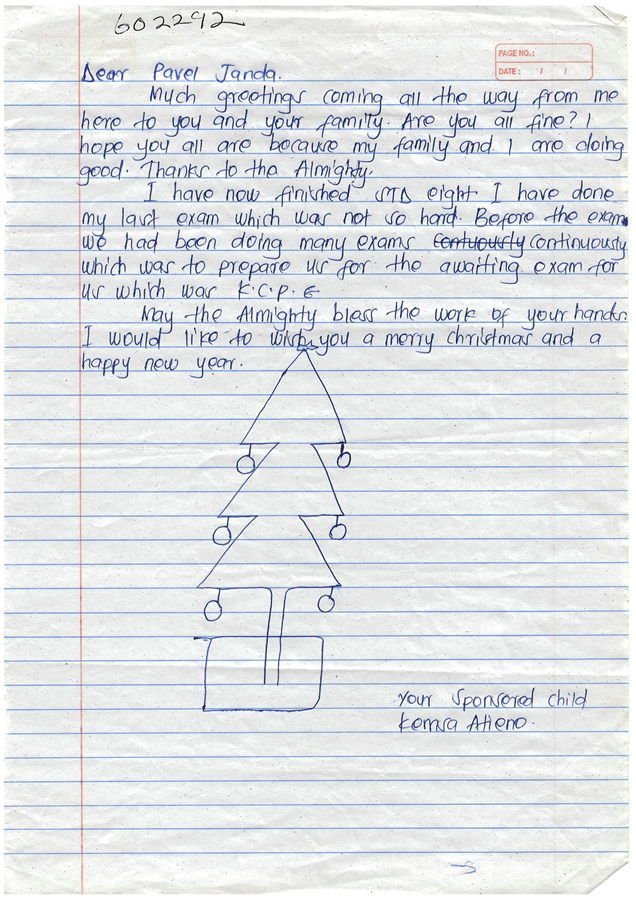 602292
PAGE NO.:
DATE: / /
Dear Pavel Janda.
Much greetings coming all the way from me
here to you and your family. Are you all fine? I
hope you all are because my family and I are doing
good. Thanks to the Almighty.
I have now finished STD eight I have done
my last exam which was not so hard. Before the exam
we had been doing many exams contuously continuously
which was to prepare us for the awaiting exam for
us which was K.C.P.E
May the Almighty bless the work of your hands.
I would like to wish you a merry christmas and a
happy new year.
Your sponsored child
Kemsa Atieno.